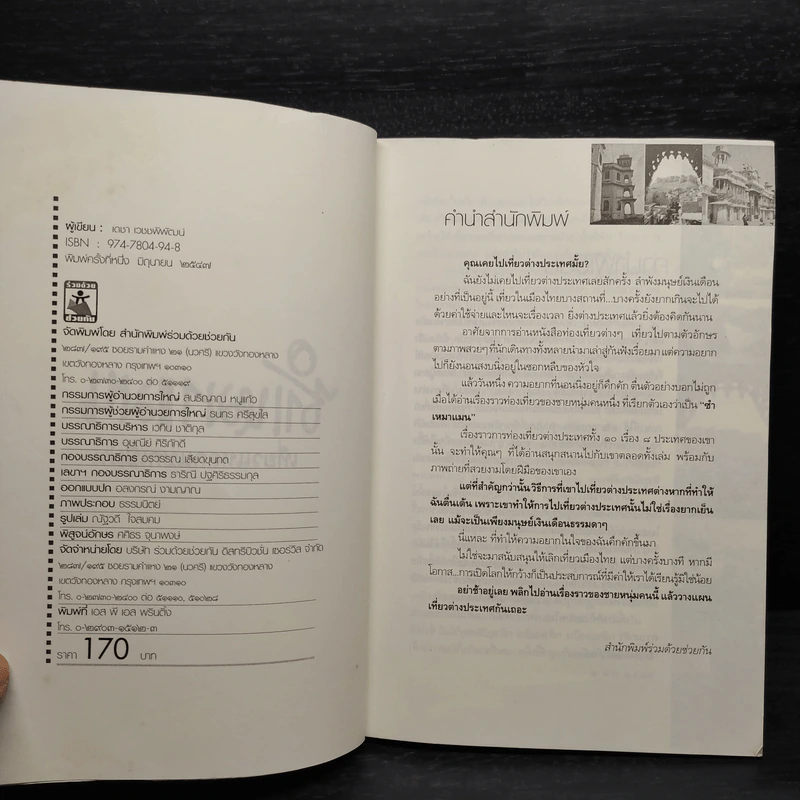 ผู้เขียน : เดชา เวชชพิพัฒน์
ISBN : 974-7804-94-8
พิมพ์ครั้งที่หนึ่ง มิถุนายน ๒๕๔๗
ร่วมด้วย
ช่วยกัน
จัดพิมพ์โดย สำนักพิมพ์ร่วมด้วยช่วยกัน
๒๘๗/๑๙๕ ซอยรามคำแหง ๒๑ (นวศรี) แขวงวังทองหลาง
เขตวังทองหลาง กรุงเทพฯ ๑๐๓๑๐
โทร. ๐-๒๗๓๐-๒๔๐๐ ต่อ ๕๑๑๑๙
กรรมการผู้อำนวยการใหญ่ สมริญาณ หนูแก้ว
กรรมการผู้ช่วยผู้อำนวยการใหญ่ ธนกร ศรีสุขใส
บรรณาธิการบริหาร เวทิน ชาติกุล
บรรณาธิการ อุษณีย์ ศิริภักดี
กองบรรณาธิการ อรวรรณ เสียดขุนทด
เลขาฯ กองบรรณาธิการ ราริณี ปฐศิริธรรมกุล
ออกแบบปก อลงกรณ์ งามญาณ
ภาพประกอบ ธรรมนิตย์
รูปเล่ม ณัฐวดี ใจสมคม
พิสูจน์อักษร ศศิธร จุนาพงษ์
จัดจำหน่ายโดย บริษัท ร่วมด้วยช่วยกัน ดิสทริบิวชั่น เซอร์วิส จำกัด
๒๘๗/๑๙๕ ซอยรามคำแหง ๒๑ (นวศรี) แขวงวังทองหลาง
เขตวังทองหลาง กรุงเทพฯ ๑๐๓๑๐
โทร. ๐-๒๗๓๐-๒๔๐๐ ต่อ ๕๑๑๑๐, ๕๑๐๒๘
พิมพ์ที่ เอส พี เอส พริ้นติ้ง
โทร. ๐-๒๙๐๓-๑๕๑๒-๓
ราคา 170 บาท
คำนำสำนักพิมพ์
คุณเคยไปเที่ยวต่างประเทศมั้ย?
ฉันยังไม่เคยไปเที่ยวต่างประเทศเลยสักครั้ง ลำพังมนุษย์เงินเดือน
อย่างที่เป็นอยู่นี้ เที่ยวในเมืองไทยบางสถานที่...บางครั้งยังยากเกินจะไปได้
ด้วยค่าใช้จ่ายและไหนจะเรื่องเวลา ยิ่งต่างประเทศแล้วยิ่งต้องคิดกันนาน
อาศัยจากการอ่านหนังสือท่องเที่ยวต่างๆ เที่ยวไปตามตัวอักษร
ตามภาพสวยๆที่นักเดินทางทั้งหลายนำมาเล่าสู่กันฟังเรื่อยมา แต่ความอยาก
ไปก็ยังนอนสงบนิ่งอยู่ในซอกหลืบของหัวใจ
แล้ววันหนึ่ง ความอยากที่นอนนิ่งอยู่ก็คึกคัก ตื่นตัวอย่างบอกไม่ถูก
เมื่อได้อ่านเรื่องราวท่องเที่ยวของชายหนุ่มคนหนึ่ง ที่เรียกตัวเองว่าเป็น “ซำ
เหมาแมน”
เรื่องราวการท่องเที่ยวต่างประเทศทั้ง ๑๐ เรื่อง ๘ ประเทศของเขา
นั้น จะทำให้คุณๆ ที่ได้อ่านสนุกสนานไปกับเขาตลอดทั้งเล่ม พร้อมกับ
ภาพถ่ายที่สวยงามโดยฝีมือของเขาเอง
แต่ที่สำคัญกว่านั้นวิธีการที่เขาไปเที่ยวต่างประเทศต่างหากที่ทำให้
ฉันตื่นเต้น เพราะเขาทำให้การไปเที่ยวต่างประเทศนั้นไม่ใช่เรื่องยากเย็น
เลย แม้จะเป็นเพียงมนุษย์เงินเดือนธรรมดาๆ
นี่แหละ ที่ทำให้ความอยากในใจของฉันคึกคักขึ้นมา
ไม่ใช่จะมาสนับสนุนให้เลิกเที่ยวเมืองไทย แต่บางครั้งบางที หากมี
โอกาส...การเปิดโลกให้กว้างก็เป็นประสบการณ์ที่มีค่าให้เราได้เรียนรู้มิใช่น้อย
อย่าช้าอยู่เลย พลิกไปอ่านเรื่องราวของชายหนุ่มคนนี้ แล้ววางแผน
เที่ยวต่างประเทศกันเถอะ
สำนักพิมพ์ร่วมด้วยช่วยกัน